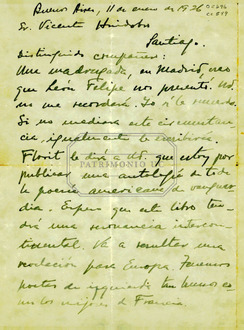 Buenos Aires, 11 de enero de 1926
Sr. Vicente Huidobro
Santiago.
Distinguido compañero:
Una madrugada, en Madrid, creo
que León Felipe nos presentó. Ud.
no me recordará. Yo sí le recuerdo.
Si no mediara esta circunstan-
cia, igualmente le escribiría.
Florit le dirá a Ud. que estoy por
publicar una antología de toda
la poesía americana de vanguar-
dia. Espero que este libro ten-
drá una resonancia intercon-
tinental. Va a resultar una
revelación para Europa. Tenemos
poetas de izquierda tan buenos co-
mo los mejores de Francia.
PATRIMONIO UC